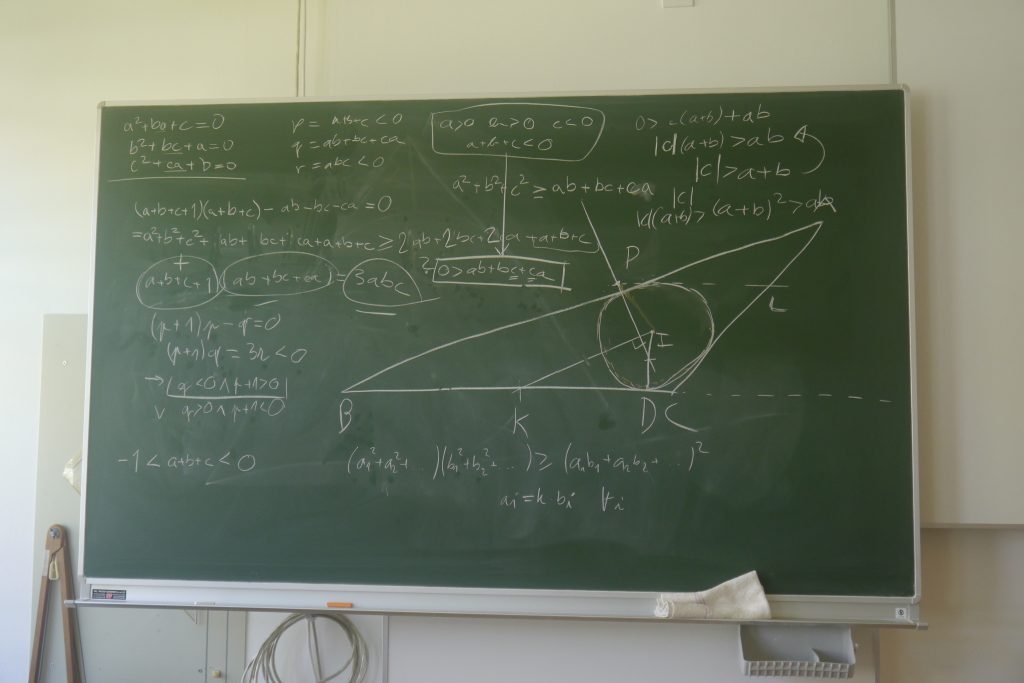 a²+ba+c=0
b²+bc+a=0
c²+ca+b=0
p = a+b+c<0
q = ab+bc+ca
r = abc<0
a>0 b>0 c<0
a+b+c<0
a²+b²+c² ≥ ab+bc+ca
0> c(a+b)+ab
|c|(a+b)>ab
|c|>a+b
|c|
|c|(a+b)>(a+b)²>ab
(a+b+c+1)(a+b+c)-ab-bc-ca=0
=a²+b²+c²+ ab+ bc+ ca+a+b+c ≥ 2ab+2bc+2ca+a+b+c
a+b+c+1 ab+bc+ca = 3abc
? 0>ab+bc+ca
(p+1)p-q=0
(p+1)q=3r<0
→ q<0∧p+1>0
∨ q>0∧p+1<0
-1<a+b+c<0
A
P
L
I
B
K
D
C
(a₁²+a₂²+..)(b₁²+b₂²+...) ≥ (a₁b₁+a₂b₂+..)²
aᵢ=k·bᵢ ∀i